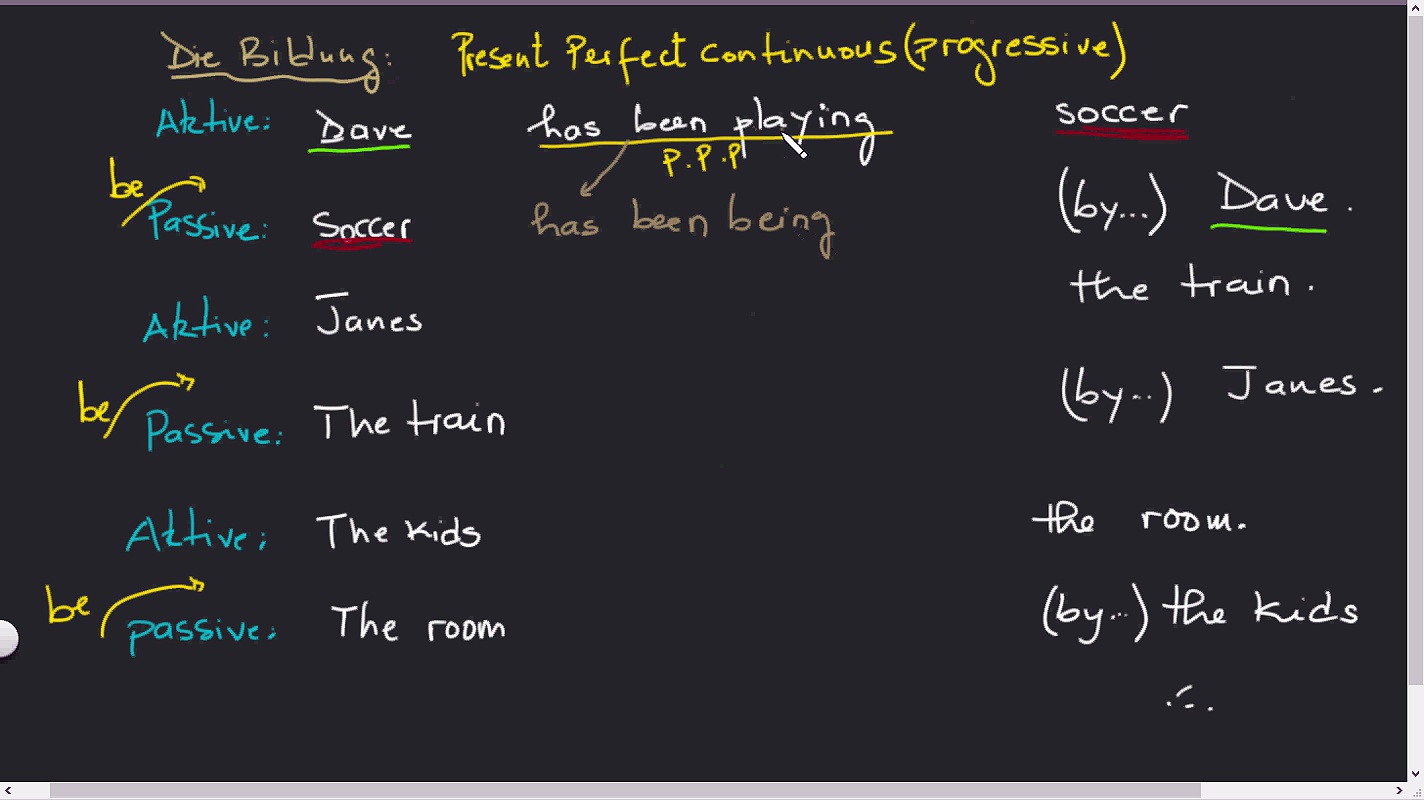 Die Bildung: Present Perfect Continuous (progressive)
Aktive: Dave has been playing soccer
P.P.P
be
Passive: Soccer has been being (by...) Dave.
Aktive: Janes the train.
be
Passive: The train (by..) Janes.
Aktive: The kids the room.
be
passive: The room (by..) the kids